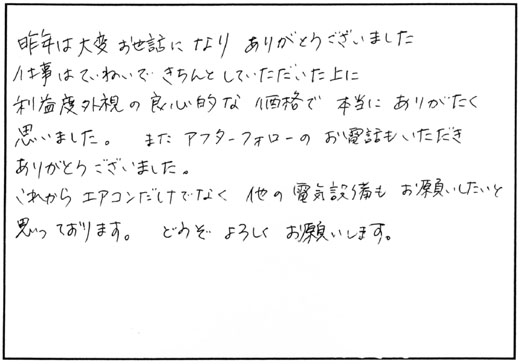 昨年は大変お世話になり ありがとうございました
仕事はていねいで きちんとしていただいた上に
利益度外視の良心的な 価格で 本当に ありがたく
思いました。 また アフターフォローの お電話もいただき
ありがとうございました。
これから エアコンだけでなく 他の 電気設備も お願いしたいと
思っております。 どうぞ よろしく お願いします。